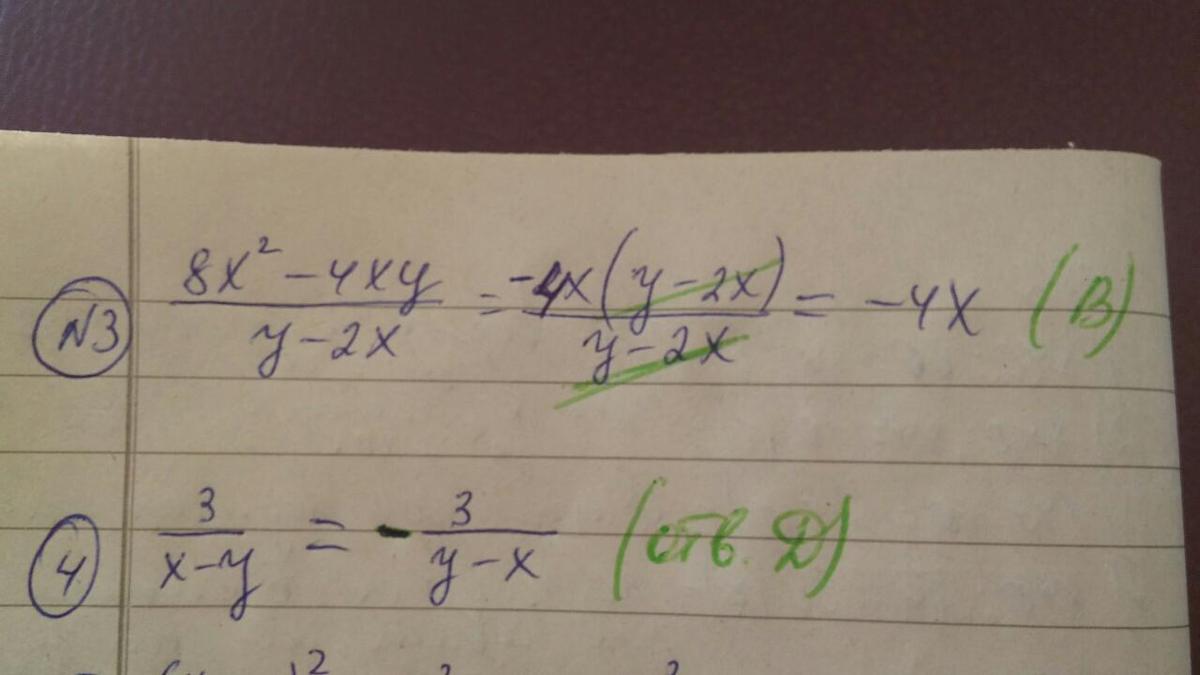 №3 (8x² - 4xy)/(y - 2x) = -4x(y - 2x)/(y - 2x) = -4x (В)
4 3/(x - y) = - 3/(y - x) (отв. Д)